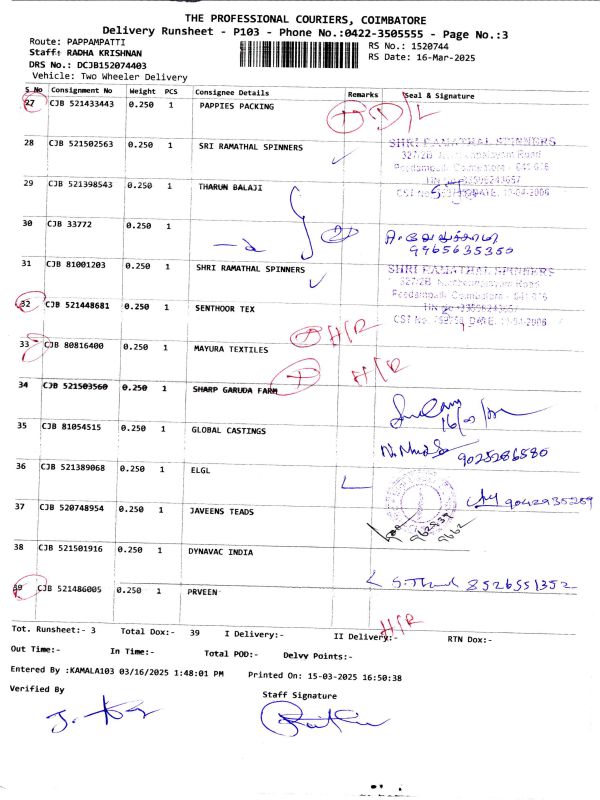 THE PROFESSIONAL COURIERS, COIMBATORE
Delivery Runsheet - P103 - Phone No.:0422-3505555 - Page No.:3
Route: PAPPAMPATTI
RS No.: 1520744
Staff: RADHA KRISHNAN
RS Date: 16-Mar-2025
DRS No.: DCJB152074403
Vehicle: Two Wheeler Delivery
S No Consignment No Weight PCS Consignee Details Remarks Seal & Signature
27 CJB 521433443 0.250 1 PAPPIES PACKING D/L
28 CJB 521502563 0.250 1 SRI RAMATHAL SPINNERS
SHRI RAMATHAL SPINNERS
29 CJB 521398543 0.250 1 THARUN BALAJI
30 CJB 33772 0.250 1
9965635350
31 CJB 81001203 0.250 1 SHRI RAMATHAL SPINNERS
SHRI RAMATHAL SPINNERS
32 CJB 521448681 0.250 1 SENTHOOR TEX
H/R
33 CJB 80816400 0.250 1 MAYURA TEXTILES
H/R
34 CJB 521503560 0.250 1 SHARP GARUDA FARM
35 CJB 81054515 0.250 1 GLOBAL CASTINGS
9025286580
36 CJB 521389068 0.250 1 ELGL
9042935259
37 CJB 520748954 0.250 1 JAVEENS TEADS
38 CJB 521501916 0.250 1 DYNAVAC INDIA
8526551352
39 CJB 521486005 0.250 1 PRVEEN
H/R
Tot. Runsheet:- 3 Total Dox:- 39 I Delivery:- II Delivery:- RTN Dox:-
Out Time:- In Time:- Total POD:- Delvy Points:-
Entered By :KAMALA103 03/16/2025 1:48:01 PM Printed On: 15-03-2025 16:50:38
Verified By Staff Signature